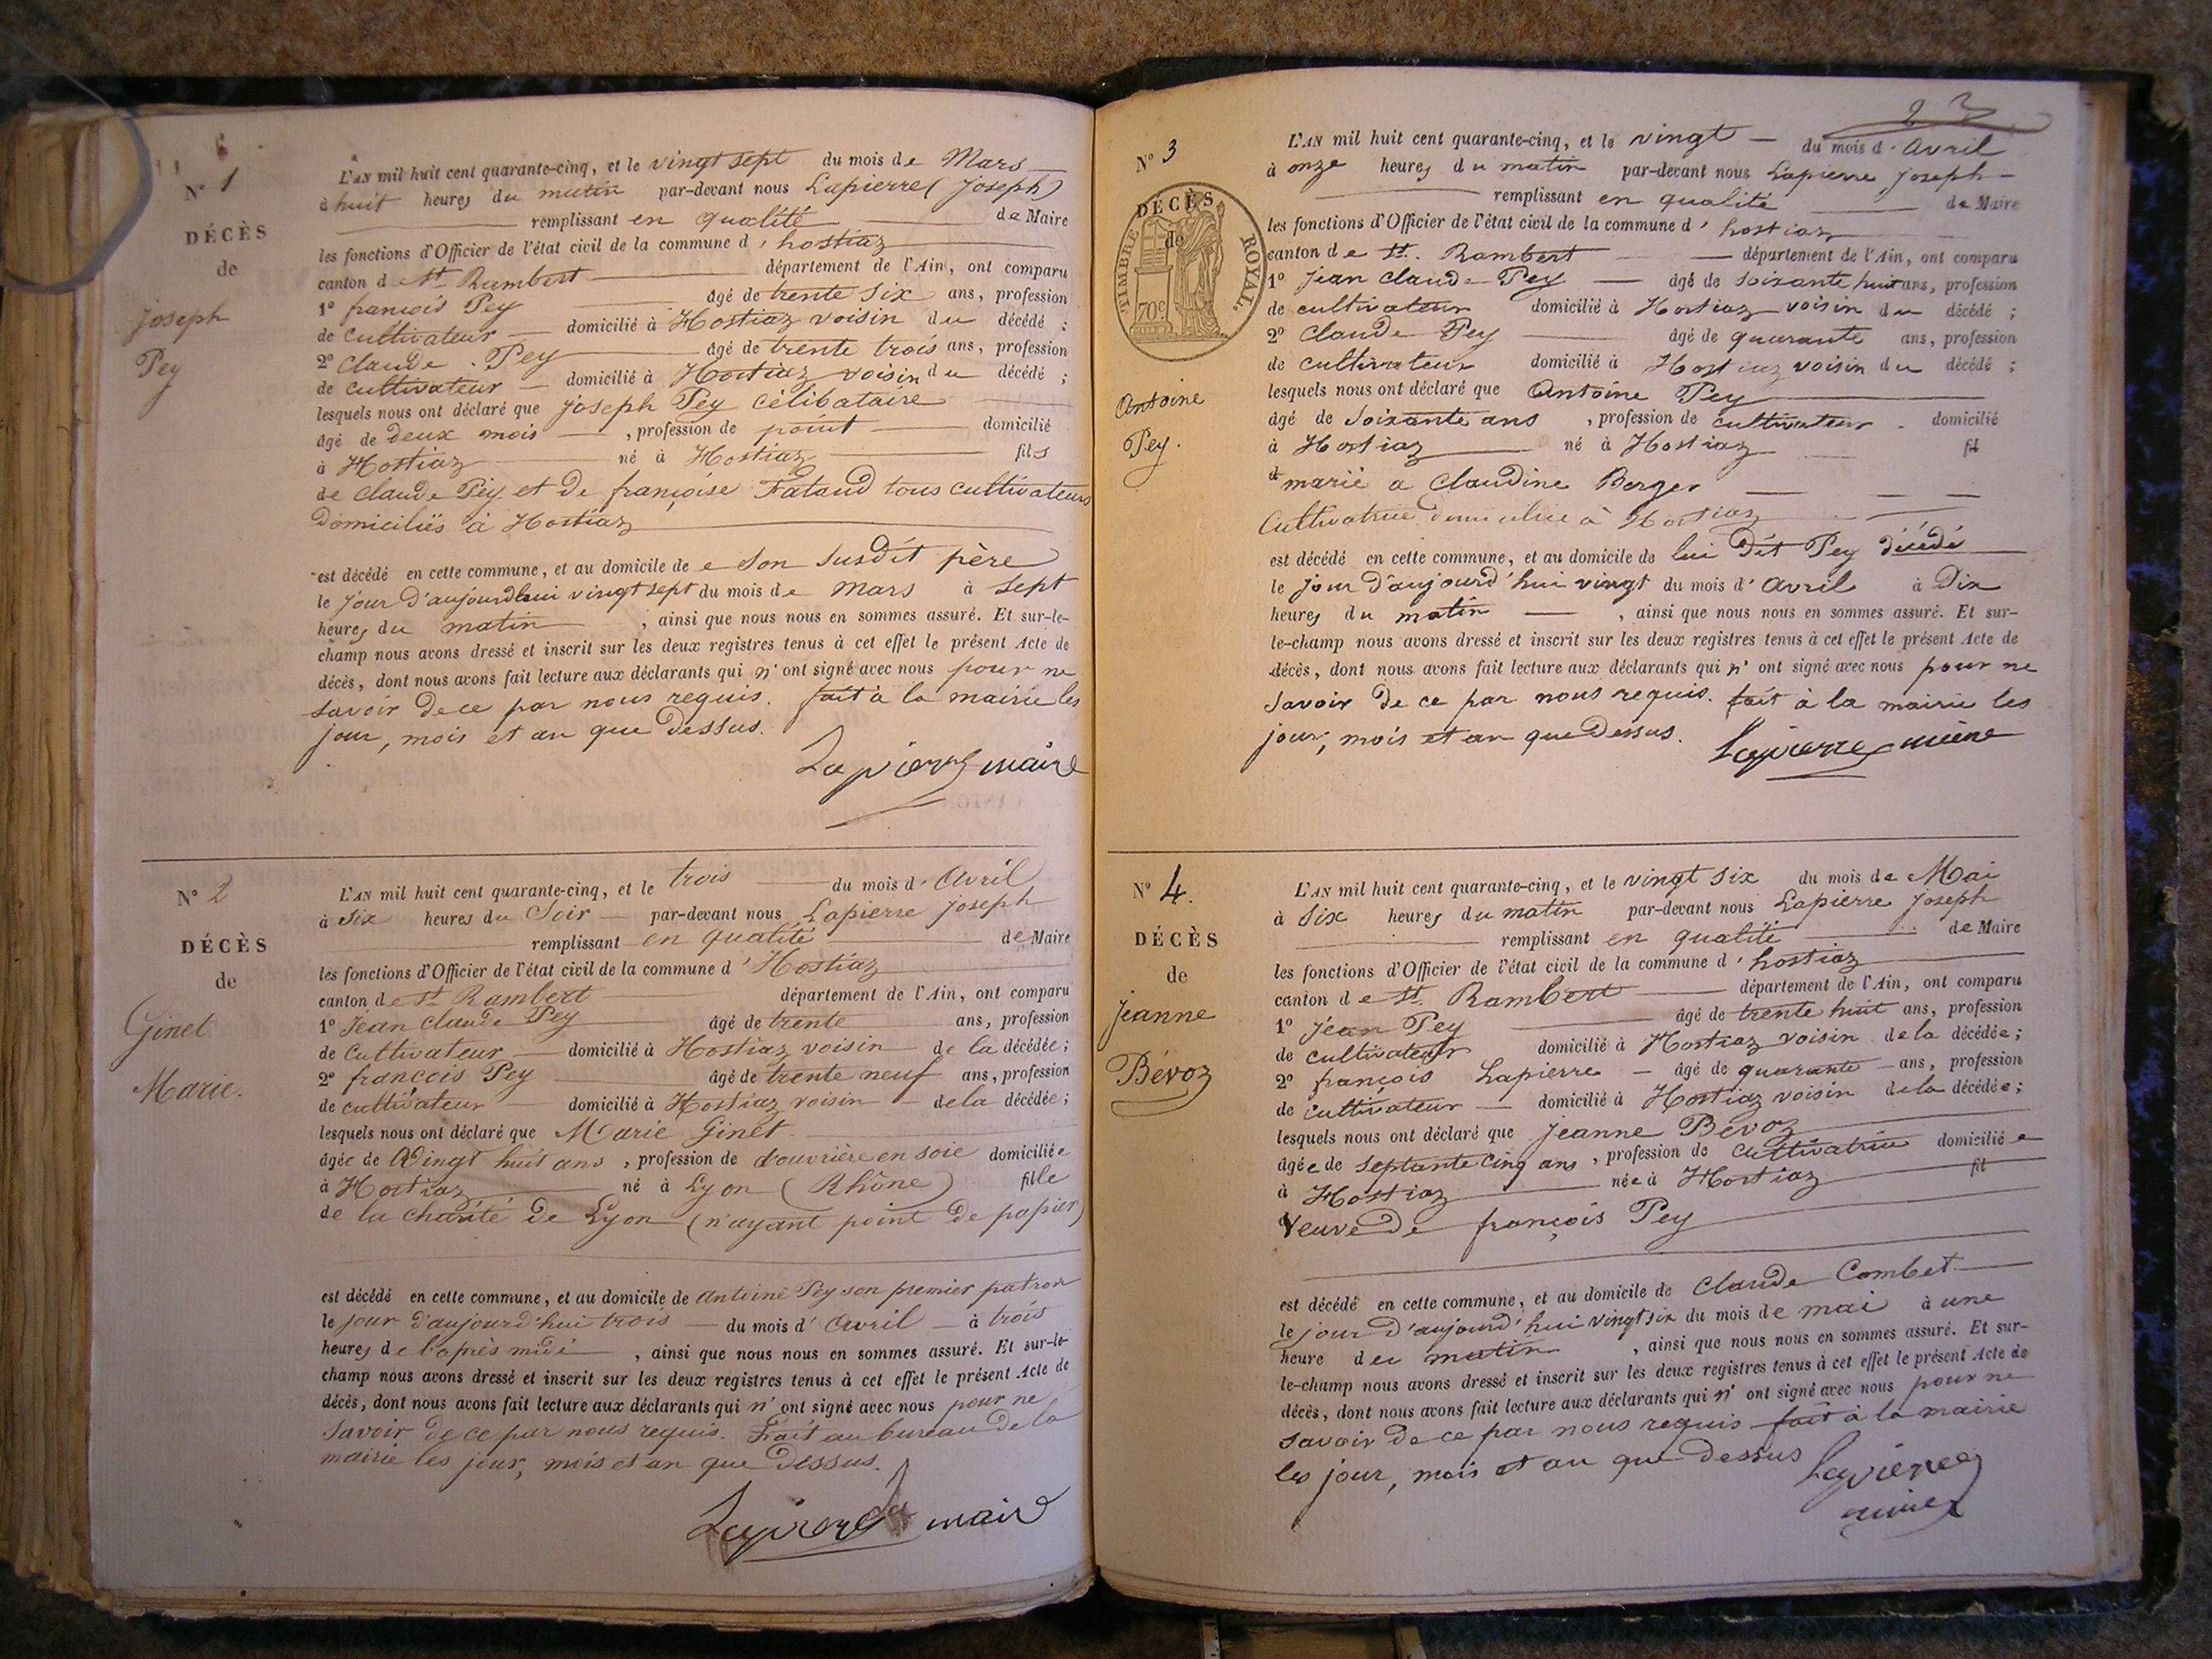 N° 1
DÉCÈS
de
Joseph
Pey
L'AN mil huit cent quarante-cinq, et le vingt sept du mois de Mars
à huit heures du matin par-devant nous Lapierre (Joseph)
remplissant en qualité de Maire
les fonctions d'Officier de l'état civil de la commune d'hostiaz
canton de St Rambert département de l'Ain, ont comparu
1° françois Pey âgé de trente six ans, profession
de cultivateur domicilié à Hostiaz voisin du décédé ;
2° Claude Pey âgé de trente trois ans, profession
de cultivateur domicilié à Hostiaz voisin du décédé ;
lesquels nous ont déclaré que Joseph Pey célibataire
âgé de deux mois , profession de point domicilié
à Hostiaz né à Hostiaz fils
de Claude Pey et de françoise Fataud tous cultivateurs
domiciliés à Hostiaz
est décédé en cette commune, et au domicile de e son susdit père
le jour d'aujourdhui vingt sept du mois de Mars à sept
heures du matin , ainsi que nous nous en sommes assuré. Et sur-le-
champ nous avons dressé et inscrit sur les deux registres tenus à cet effet le présent Acte de
décès, dont nous avons fait lecture aux déclarants qui n'ont signé avec nous pour ne
savoir de ce par nous requis. fait à la mairie les
jour, mois et an que dessus.
Lapierre maire
N° 2
DÉCÈS
de
Ginet
Marie.
L'AN mil huit cent quarante-cinq, et le trois du mois d'Avril
à six heures du Soir par-devant nous Lapierre Joseph
remplissant en qualité de Maire
les fonctions d'Officier de l'état civil de la commune d'Hostiaz
canton de St Rambert département de l'Ain, ont comparu
1° Jean Claude Pey âgé de trente ans, profession
de Cultivateur domicilié à Hostiaz voisin de la décédée ;
2° françois Pey âgé de trente neuf ans, profession
de cultivateur domicilié à Hostiaz voisin de la décédée ;
lesquels nous ont déclaré que Marie Ginet
âgée de Vingt huit ans , profession de d'ouvrière en soie domiciliée
à Hostiaz né à Lyon (Rhône) fille
de la charité de Lyon (n'ayant point de papier)
est décédé en cette commune, et au domicile de Antoine Pey son premier patron
le jour d'aujourd'hui trois du mois d'Avril à trois
heures de l'après midi , ainsi que nous nous en sommes assuré. Et sur-le-
champ nous avons dressé et inscrit sur les deux registres tenus à cet effet le présent Acte de
décès, dont nous avons fait lecture aux déclarants qui n'ont signé avec nous pour ne
savoir de ce par nous requis. Fait au bureau de la
mairie les jour, mois et an que dessus.
Lapierre maire
N° 3
DÉCÈS
de
TIMBRE ROYAL
70c
Antoine
Pey.
L'AN mil huit cent quarante-cinq, et le vingt du mois d'Avril
à onze heures du matin par-devant nous Lapierre Joseph
remplissant en qualité de Maire
les fonctions d'Officier de l'état civil de la commune d'hostiaz
canton de St. Rambert département de l'Ain, ont comparu
1° Jean Claude Pey âgé de soixante huit ans, profession
de cultivateur domicilié à Hostiaz voisin du décédé ;
2° Claude Pey âgé de quarante ans, profession
de cultivateur domicilié à Hostiaz voisin du décédé ;
lesquels nous ont déclaré que Antoine Pey
âgé de soixante ans , profession de cultivateur domicilié
à Hostiaz né à Hostiaz fil
d marié a Claudine Berger
Cultivatrice domiciliée à Hostiaz
est décédé en cette commune, et au domicile de lui dit Pey décédé
le jour d'aujourd'hui vingt du mois d'Avril à Dix
heures du matin , ainsi que nous nous en sommes assuré. Et sur-
le-champ nous avons dressé et inscrit sur les deux registres tenus à cet effet le présent Acte de
décès, dont nous avons fait lecture aux déclarants qui n'ont signé avec nous pour ne
savoir de ce par nous requis. fait à la mairie les
jour, mois et an que dessus.
Lapierre maire
N° 4.
DÉCÈS
de
Jeanne
Bévoz
L'AN mil huit cent quarante-cinq, et le vingt six du mois de Mai
à six heures du matin par-devant nous Lapierre Joseph
remplissant en qualité de Maire
les fonctions d'Officier de l'état civil de la commune d'hostiaz
canton de St. Rambert département de l'Ain, ont comparu
1° Jean Pey âgé de trente huit ans, profession
de cultivateur domicilié à Hostiaz voisin de la décédée ;
2° françois Lapierre âgé de quarante ans, profession
de cultivateur domicilié à Hostiaz voisin de la décédée ;
lesquels nous ont déclaré que Jeanne Bévoz
âgée de septante cinq ans , profession de cultivatrice domiciliée
à Hostiaz née à Hostiaz fil
Veuve de françois Pey
est décédé en cette commune, et au domicile de Claude Combet
le jour d'aujourd'hui vingt six du mois de mai à une
heure du matin , ainsi que nous nous en sommes assuré. Et sur-
le-champ nous avons dressé et inscrit sur les deux registres tenus à cet effet le présent Acte de
décès, dont nous avons fait lecture aux déclarants qui n'ont signé avec nous pour ne
savoir de ce par nous requis fait à la mairie
les jour, mois et an que dessus
Lapierre
maire